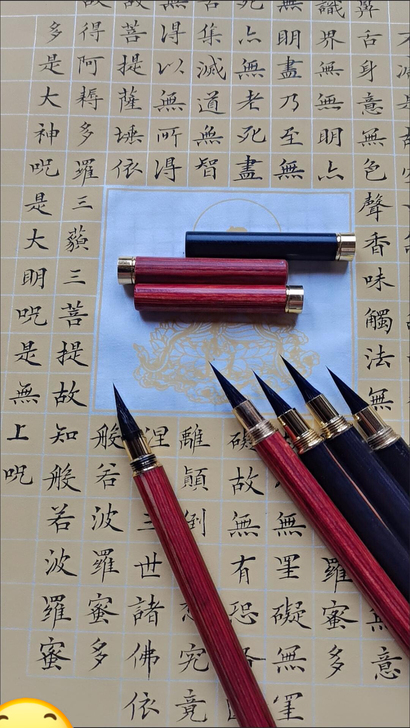 鼻舌身意無色聲香味觸法無意
識界無無明亦羅蜜多
無明盡乃至無無罣礙無罣
死亦無老死盡礙故無有恐
苦集滅道無智離顛倒究竟
得以無所得涅三世諸佛依
故菩提薩埵依般若波羅蜜多
故得阿耨多羅三藐三菩提故知般若波羅蜜
多是大神呪是大明呪是無上呪